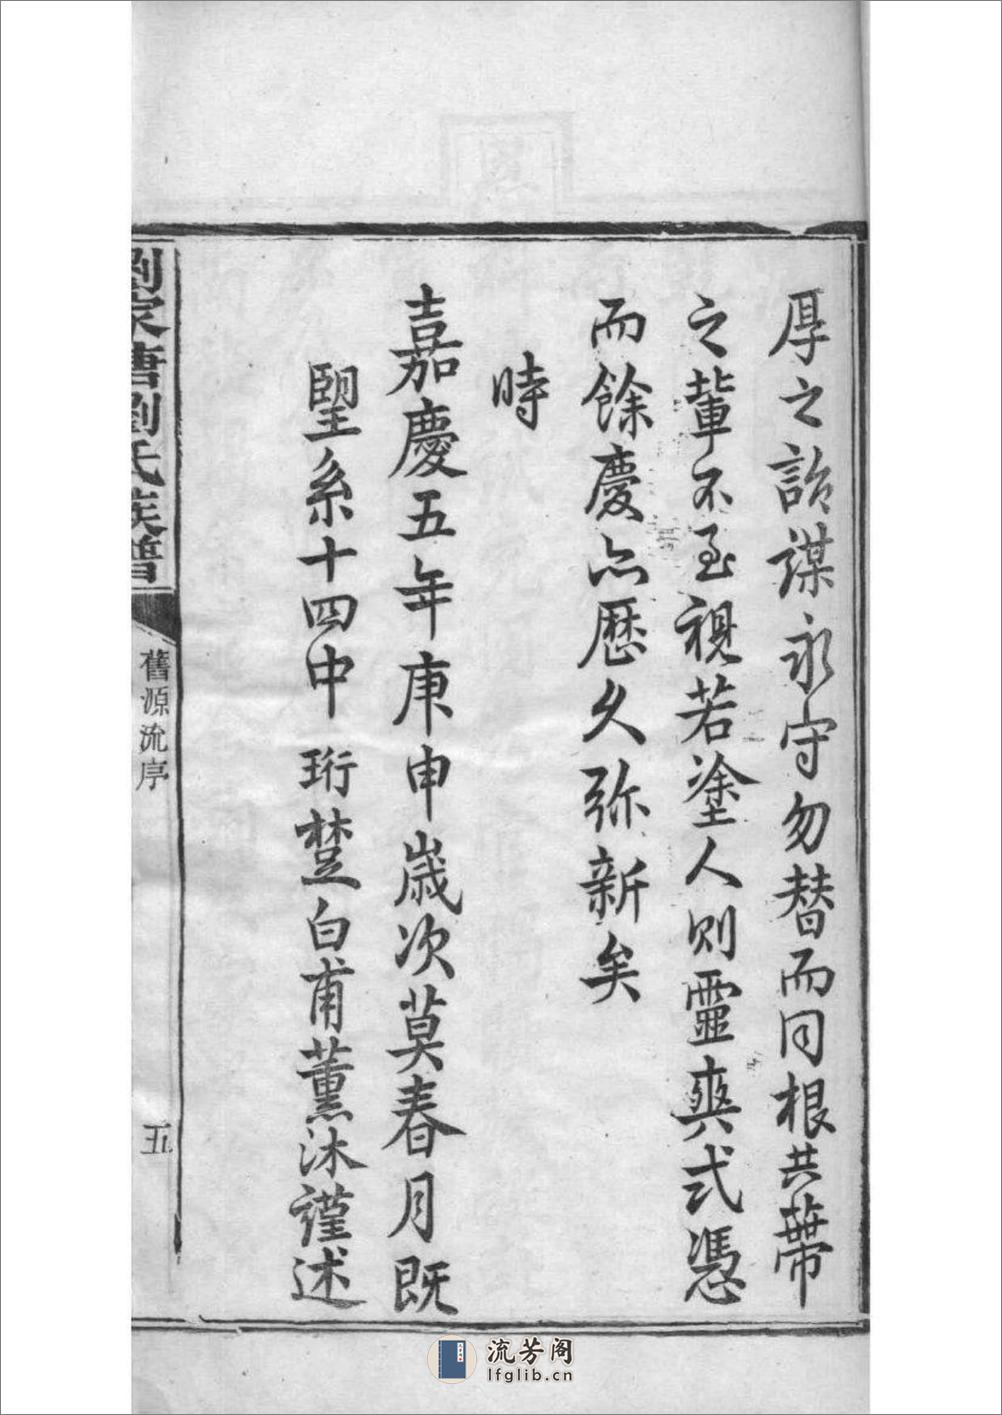 厚之詒謀永守勿替而同根共蔕
之輩不至視若塗人則靈爽式憑
而餘慶亦歷久弥新矣
時
嘉慶五年庚申歲次莫春月既
朢系十四中 珩楚白甫薰沐謹述
劉家塘劉氏族譜
舊源流序
五
流芳阁
lfglib.cn